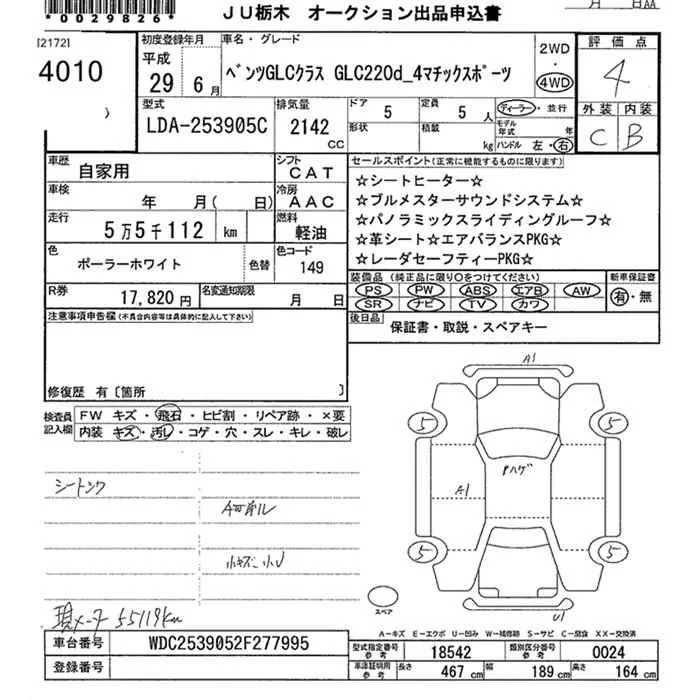 *0029826*
JU栃木 オークション出品申込書
月 日AA
[2172]
4010
)
初度登録年月
平成
29 6月
車名・グレード
ベンツGLCクラス GLC220d_4マチックスポーツ
2WD
・
4WD
評価点
4
外装 内装
C B
型式
LDA-253905C
排気量
2142
CC
ドア
5
定員
5 人
形状
積載
kg
ディーラー・並行
モデル年式 年
ハンドル 左・右
車歴
自家用
シフト
CAT
車検
年 月( 日)
冷房
AAC
走行
5万5千112 km
燃料
軽油
色
ポーラーホワイト
色替
色コード
149
R券
17,820 円
名変通知期限
月 日
セールスポイント(正常に機能するものに限ります)
☆シートヒーター☆
☆ブルメスターサウンドシステム☆
☆パノラミックスライディングルーフ☆
☆革シート☆エアバランスPKG☆
☆レーダセーフティーPKG☆
装備品(純正品に限り○をつけてください)
PS PW ABS エアB AW
SR ナビ TV カワ
新車保証書
有・無
後日品
保証書・取説・スペアキー
注意事項申告欄(不具合内容等は具体的に記入して下さい)
修復歴 有〔箇所 〕
検査員記入欄
FW キズ・飛石・ヒビ割・リペア跡・×要
内装 キズ・汚レ・コゲ・穴・スレ・キレ・破レ
A1
5 5
Pハゲ
A1
5 5
U1
スペア
A4ヨ削ル
小キズ 小U
現メータ 55119km
A-キズ E-エクボ U-凹み W-補修跡 S-サビ C-腐食 XX-交換済
車台番号
WDC2539052F277995
登録番号
型式指定番号 参考
18542
類別区分番号 参考
0024
車庫証明用 参考
長さ 467 cm
幅 189 cm
高さ 164 cm